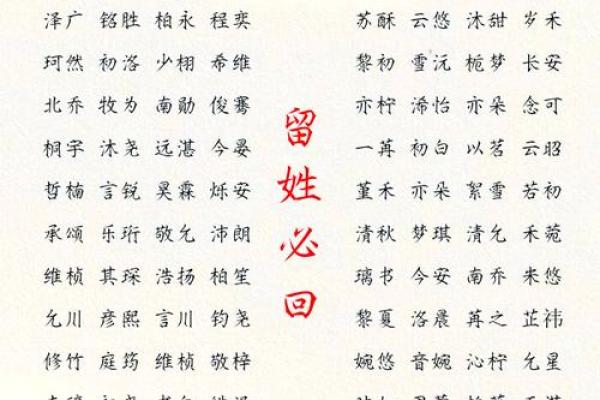 泽广 铭胜 柏永 程奕
珂然 初洛 少栩 希维
北乔 牧为 南勋 俊骞
桐宇 沐尧 远湛 今晏
哲楠 言锐 昊霖 烁安
承颂 乐珩 敬允 沛朗
维桢 其琛 浩扬 柏笙
允川 彦熙 言川 钧尧
修竹 庭筠 维桢 敬梓
留姓必回
苏酥 云悠 沐甜 岁禾
黎初 雪沅 栀梦 长安
亦柠 浠怡 亦朵 念可
一苒 初白 以茗 云昭
堇禾 亦朵 絮雪 若初
清秋 梦琪 清允 禾菀
璃书 今安 南乔 来悠
黎夏 洛晨 苒之 芷祎
婉悠 音婉 沁柠 允星